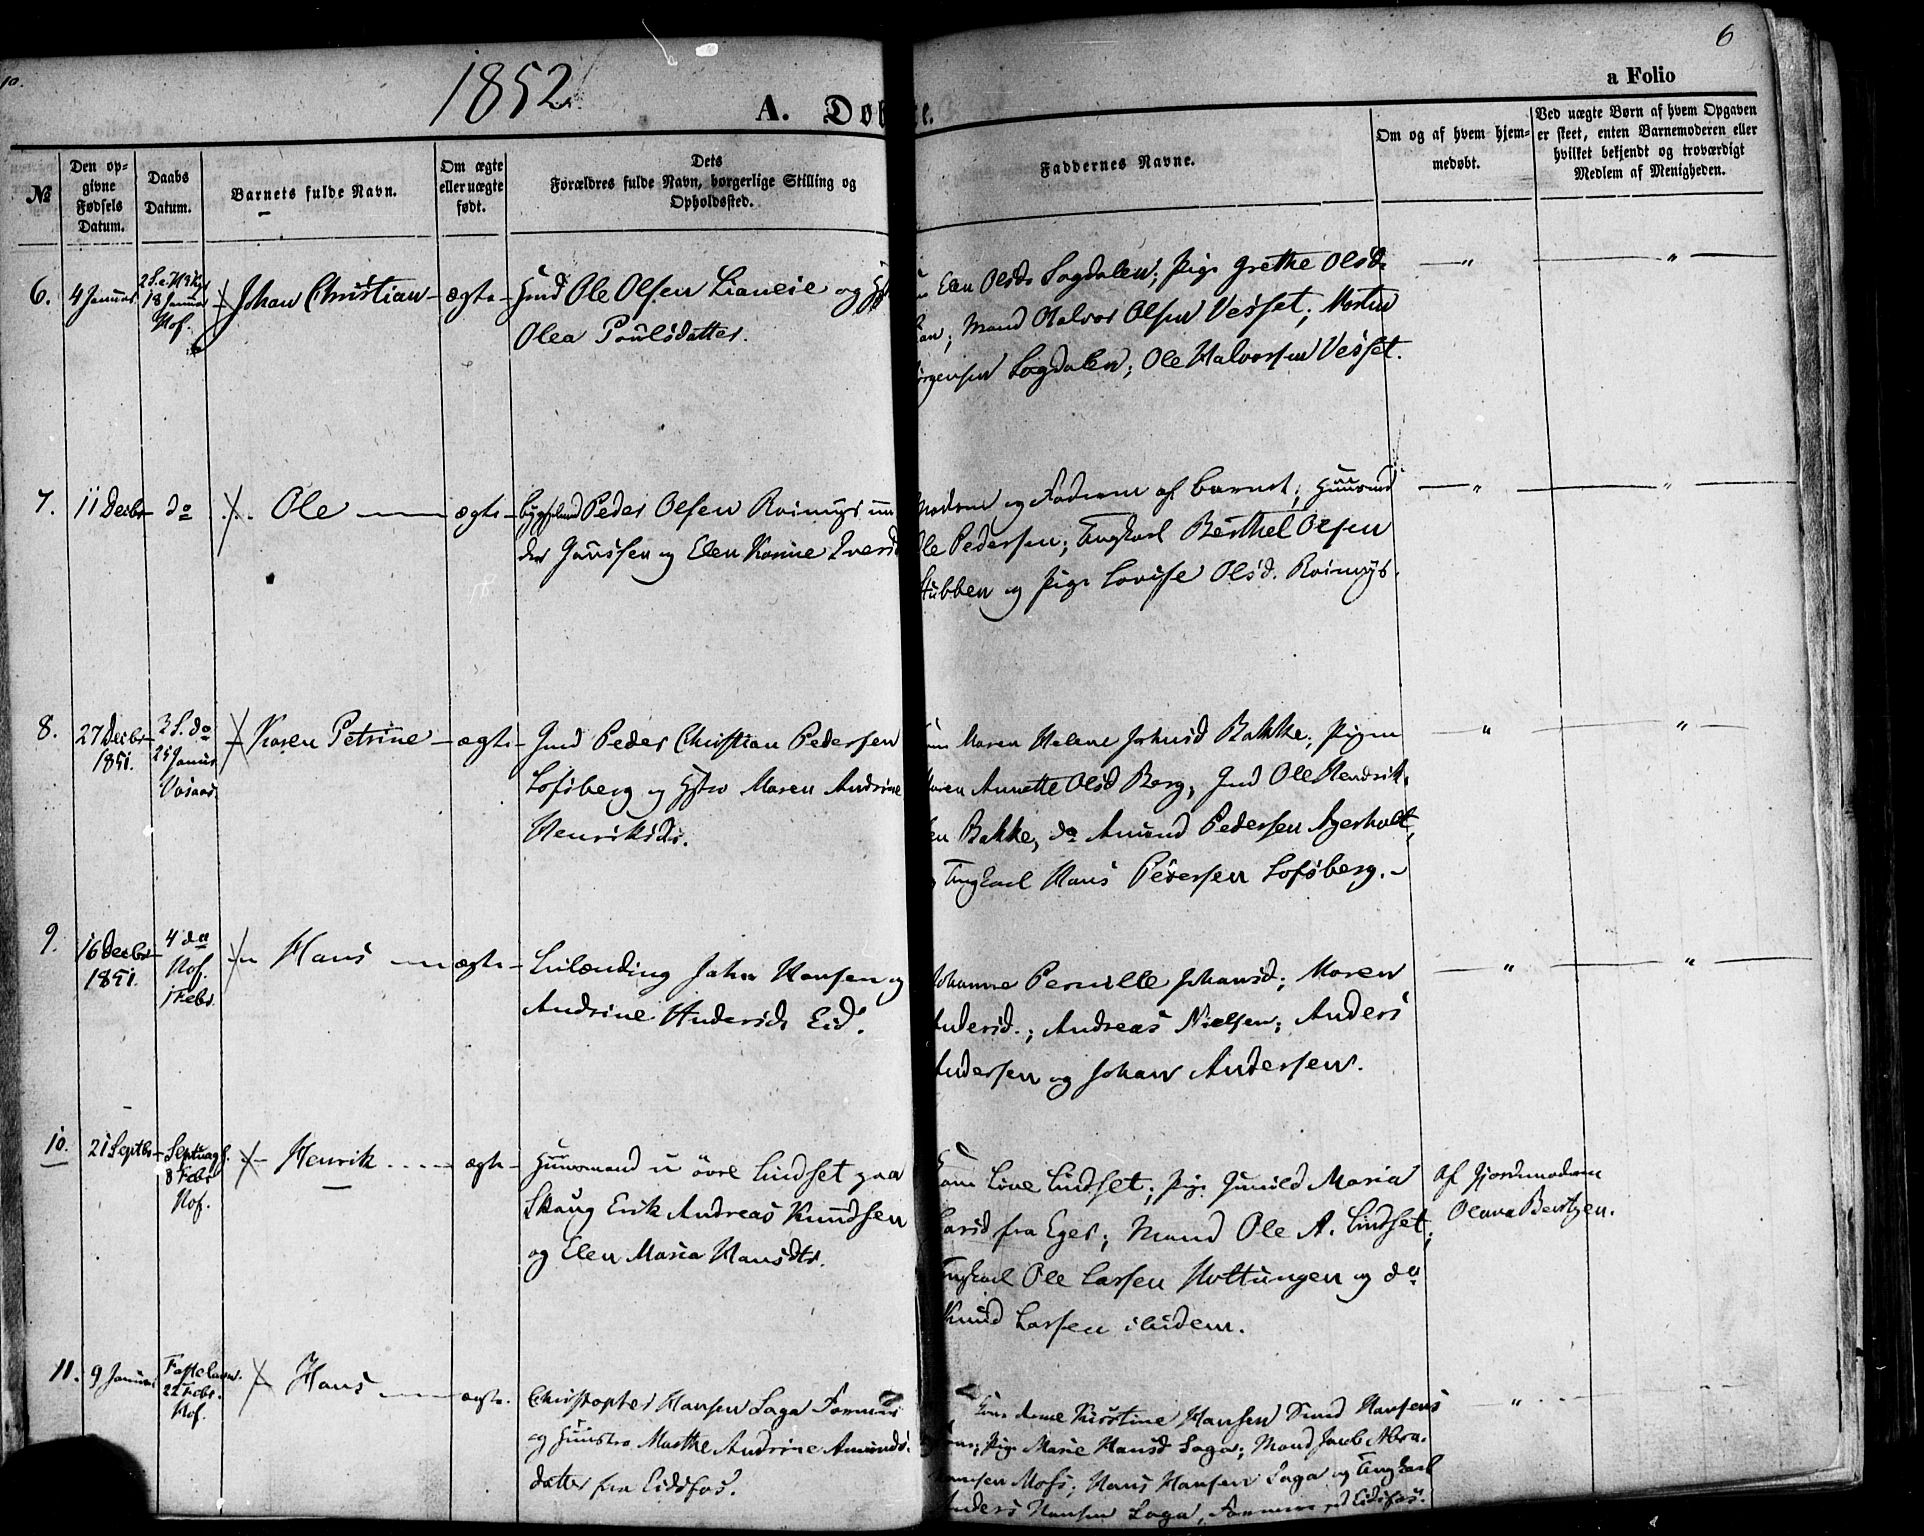 1852
6
A. Døb
te.
a Folio
№
Den op-
givne
Fødsels
Datum.
Daabs
Datum.
Barnets fulde Navn.
Om ægte
eller uægte
født.
Dets
Forældres fulde Navn, borgerlige Stilling og
Opholdssted.
Faddernes Navne.
Om og af hvem hjem-
medøbt.
Ved uægte Børn af hvem Opgaven
er skeet, enten Barnemoderen eller
hvilket bekjendt og troværdigt
Medlem af Menigheden.
6.
4 Januar
18 Januar
Hof.
Johan Christian
ægte
Gmd Ole Olsen Lianeie og
Olea Poulsdatter.
Elen Olsd. Sogdalen; Pige Grethe Olsd.
Mand Halvor Olsen Vesset; Morten
Jørgensen Sogdalen; Ole Halvorsen Vesset.
7.
11 Decbr
do
Ole
ægte
Peder Olsen Roimyr un
der Gaussen og Elen Karine Iversd
Moderen og Faderen af Barnet; Huusmd
Ole Pedersen; Ungkarl Berthel Olsen
Stubben og Pige Lovise Olsd. Roimyr.
8.
27 Decbr
1851.
3 S. do
25 Januar
Vasaas
Karen Petrine
ægte
Gmd Peder Christian Pedersen
Lofsberg og Hstro Maren Andrine
Henriksdr.
Maren Helene Johnsd Bakke; Pigen
Maren Annette Olsd Berg; Gmd Ole Hendrik-
sen Bakke, do Amund Pedersen Agerholt,
og Ungkarl Hans Pedersen Lofsberg.
9.
16 Decbr
1851.
4 do
Hof.
1 Febr.
Hans
ægte
Inlænding John Hansen og
Andrine Andersdr Eid.
Johanne Pernille Johansd; Maren
Andersd.; Andreas Nielsen; Anders
Andersen og Johan Andersen.
10.
21 Septbr
Septuag.
8 Febr
Hof.
Henrik
ægte
Huusmand u øvre Lindset paa
Skoug Erik Andreas Knudsen
og Elen Maria Hansdtr.
Kone Live Lindset; Pige Gunild Maria
Larsd fra Eger; Mand Ole A. Lindset;
Ungkarl Ole Larsen Hottungen og do
Knud Larsen ibidem.
Af Gjordmoderen
Olava Bentzen.
11.
9 Januar
Fastelavn.
22 Febr.
Hof.
Hans
ægte.
Christopher Hansen Saga Former
og Huustro Marthe Andrine Amunds-
datter fra Eidsfos.
Kirstine Hansen Sund Hansens
Kone; Pige Marie Hansd Saga; Mand Jacob Abra-
hamsen Mofs; Hans Hansen Saga og Ungkarl
Anders Hansen Saga, Former ved Eidsfos.